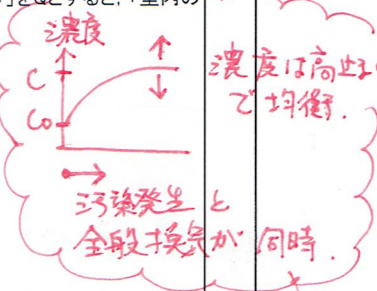 とすると、「室内の
濃度
C
Co
濃度は高止まり
で均衡.
汚染発生と
全般換気が同時.